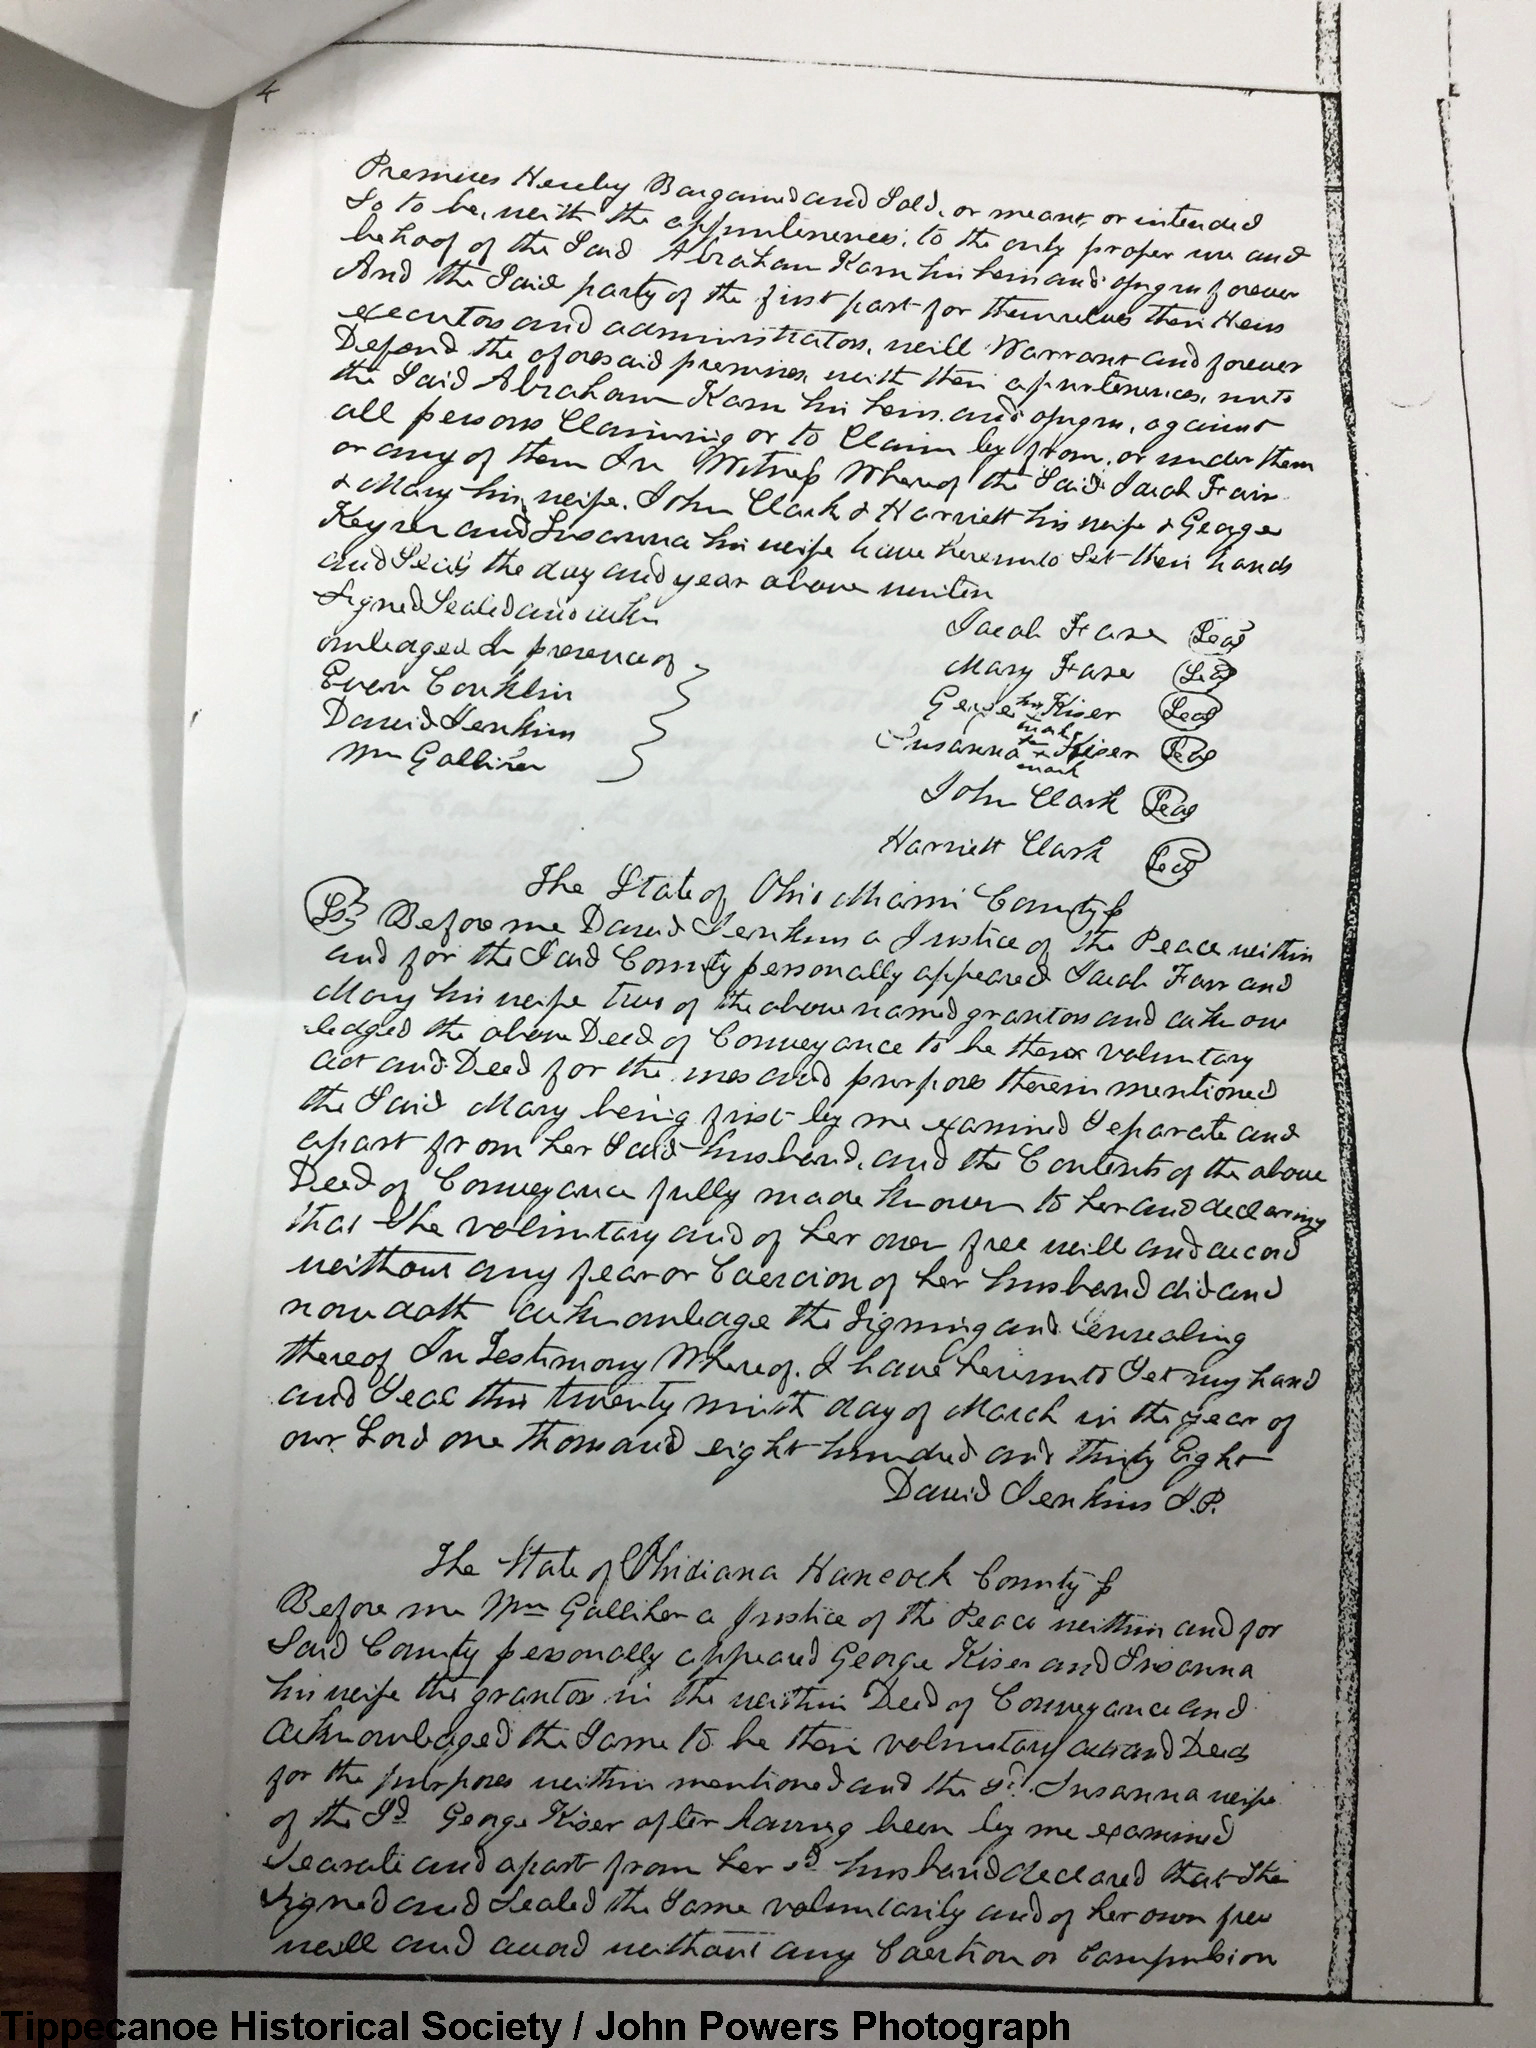 4
Premises Hereby Bargained and Sold, or meant, or intended
So to be, with the appurtenences, to the only proper use and
behoof of the Said Abraham Karn his heirs and assigns forever
And the Said party of the first part for themselves their Heirs
executors and administrators, will Warrant and forever
Defend the aforesaid premises, with their appurtenences, unto
the Said Abraham Karn his heirs and assigns, against
all persons Claiming or to Claim by, from, or under them
or any of them In Witness Whereof the Said Jacob Fair
& Mary his wife, John Clark & Harriett his wife & George
Keyser and Susanna his wife have hereunto Set their hands
and Seals the day and year above writen
Signed Sealed and ackn
owledged In presence of
Even Conklin
David Jenkins
Wm Galliher
Jacob Frase Seal
Mary Frase Seal
George his Kiser Seal
mark
Susanna her + Kiser Seal
mark
John Clark Seal
Harriett Clark Seal
The State of Ohio Miami County ss
LS Before me David Jenkins a Justice of the Peace within
and for the Said County personally appeared Jacob Fair and
Mary his wife two of the above named grantors and acknow
ledged the above Deed of Conveyance to be their voluntary
act and Deed for the uses and purposes therein mentioned
the Said Mary being first by me examined Separate and
apart from her Said husband, and the Contents of the above
Deed of Conveyance fully made known to her and declaring
that She voluntary and of her own free will and accord
without any fear or Coercion of her husband did and
now doth acknowledge the Signing and ensealing
thereof In Testimony Whereof, I have hereunto Set my hand
and Seal this twenty ninth day of March in the year of
our Lord one thousand eight hundred and thirty Eight
David Jenkins J.P.
The State of Indiana Hancock County ss
Before me Wm Galliher a Justice of the Peace within and for
Said County personally appeared George Kiser and Susanna
his wife the grantors in the within Deed of Conveyance and
acknowledged the Same to be their voluntary acts and Deeds
for the purposes within mentioned and the sd. Susanna wife
of the Sd George Kiser after having been by me examined
Searate and apart from her sd husband declared that She
Signed and Sealed the Same voluntarily and of her own free
will and accord without any Coertion or Compulsion
Tippecanoe Historical Society / John Powers Photograph